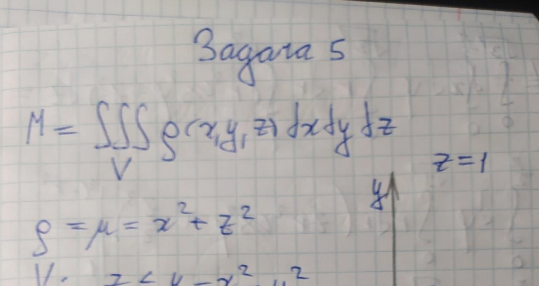 Задача 5
M = ∫∫∫ ρ(x,y,z) dx dy dz
V
z=1
y
ρ = μ = x² + z²